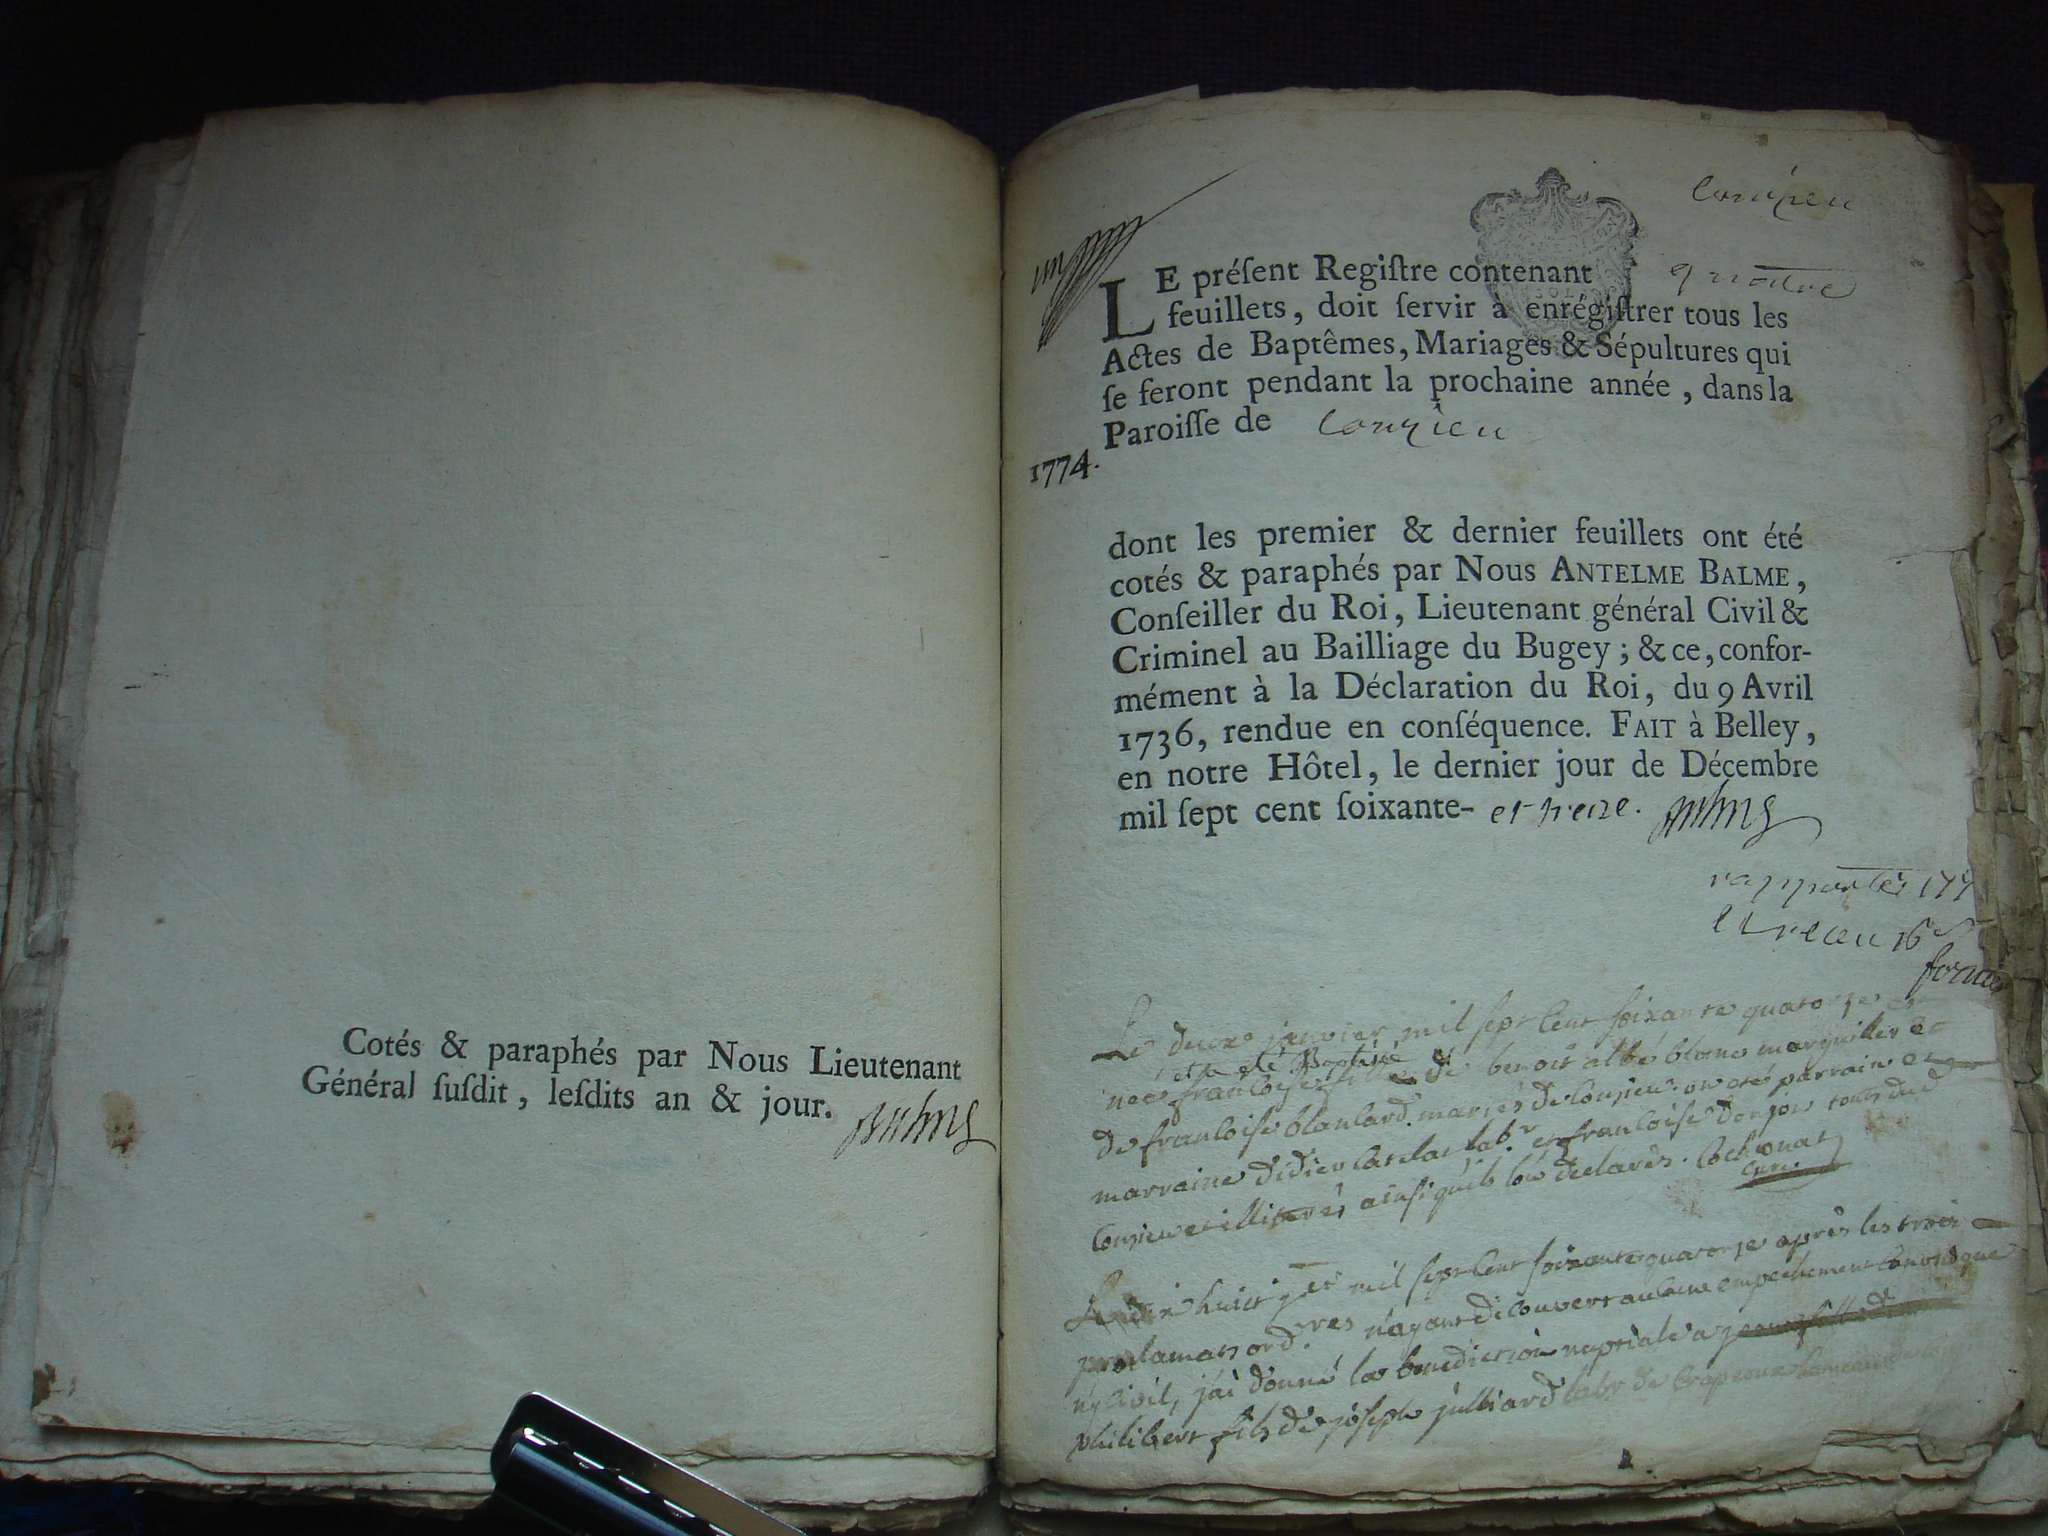 Cotés & paraphés par Nous Lieutenant
Général ſuſdit, leſdits an & jour.
Conzieu
un
LE préſent Regiſtre contenant quatre
feuillets, doit ſervir à enrégiſtrer tous les
Actes de Baptêmes, Mariages & Sépultures qui
ſe feront pendant la prochaine année, dans la
Paroiſſe de Conzieu
1774.
dont les premier & dernier feuillets ont été
cotés & paraphés par Nous ANTELME BALME,
Conſeiller du Roi, Lieutenant général Civil &
Criminel au Bailliage du Bugey ; & ce, confor-
mément à la Déclaration du Roi, du 9 Avril
1736, rendue en conſéquence. FAIT à Belley,
en notre Hôtel, le dernier jour de Décembre
mil ſept cent ſoixante- et treize.
rapportés 177
et receu 16 s
Le deux janvier mil sept cent soixante quatorze est
et a été Baptisé
née françoise fille de benoit albé blanc marguiller et
de françoise blanlard mariés de Conzieu. ont été parrain et
marraine didier labr et françoise donjou tous de
Conzieu et illiterés ainsi quils lon declarés.
curé
Le dix huict mil sept cent soixante quatorze après les trois
proclama͠ns ord res n'ayant découvert aucune empechement canonique
ny civil, j'ai donné la benediction nuptiale a
philibert fils de joseph julliard labr de